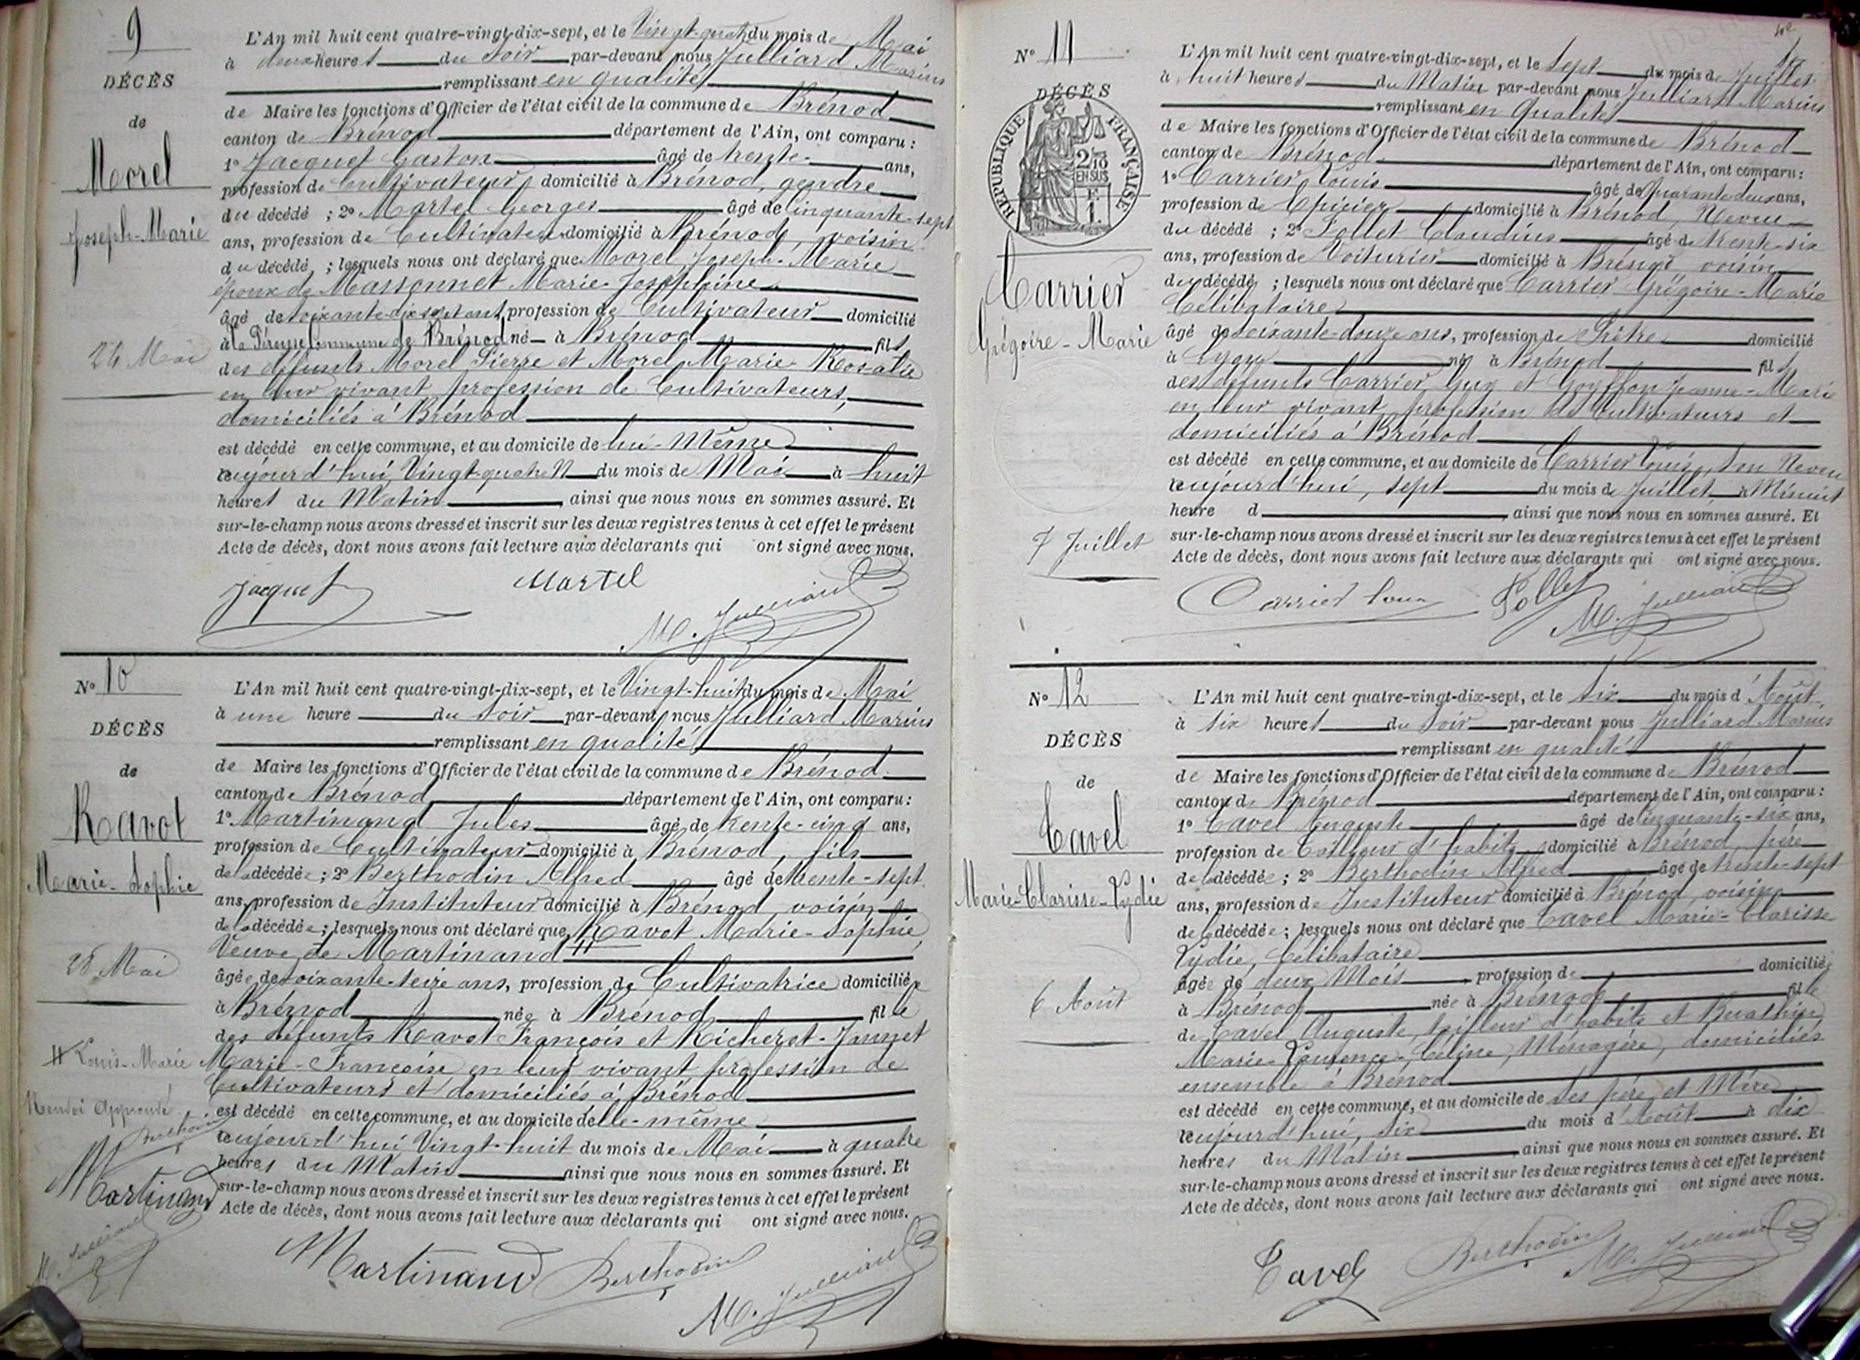 9
DÉCÈS
de
Morel
Joseph-Marie
24 Mai
L'An mil huit cent quatre-vingt-dix-sept, et le Vingt-quatre du mois de Mai
à deux heures du Soir par-devant nous Julliard Marius
remplissant en qualité
de Maire les fonctions d'Officier de l'état civil de la commune de Brénod
canton de Brénod département de l'Ain, ont comparu :
1° Jacquet Gaston âgé de trente- ans,
profession de Cultivateur domicilié à Brénod, gendre
du décédé ; 2° Martel Georges âgé de Cinquante-sept
ans, profession de Cultivateur domicilié à Brénod, voisin
du décédé ; lesquels nous ont déclaré que Morel Joseph-Marie
époux de Massonnet Marie-Joséphine
âgé de soixante-dix-sept ans, profession de Cultivateur domicilié
à la Commune de Brénod né à Brénod fils
des défunts Morel Pierre et Morel Marie-Rosalie
en leur vivant profession de Cultivateurs,
domiciliés à Brénod
est décédé en cette commune, et au domicile de lui-Même
aujourd'hui Vingt-quatre du mois de Mai à huit
heures du Matin ainsi que nous nous en sommes assuré. Et
sur-le-champ nous avons dressé et inscrit sur les deux registres tenus à cet effet le présent
Acte de décès, dont nous avons fait lecture aux déclarants qui ont signé avec nous.
Jacquet Martel
M. Julliard
N° 10
DÉCÈS
de
Ravot
Marie-Sophie
28 Mai
L'An mil huit cent quatre-vingt-dix-sept, et le Vingt-huit du mois de Mai
à une heure du Soir par-devant nous Julliard Marius
remplissant en qualité
de Maire les fonctions d'Officier de l'état civil de la commune de Brénod
canton de Brénod département de l'Ain, ont comparu :
1° Martinand Jules âgé de trente-cinq ans,
profession de Cultivateur domicilié à Brénod, fils
de la décédée ; 2° Berthodin Alfred âgé de trente-sept
ans, profession de Instituteur domicilié à Brénod, voisin
de la décédée ; lesquels nous ont déclaré que Ravot Marie-Sophie
Veuve de Martinand #
âgée de soixante-seize ans, profession de Cultivatrice domiciliée
à Brénod née à Brénod fille
des défunts Ravot François et Richerot-Jannet
Marie-Françoise en leur vivant profession de
Cultivateurs et domiciliés à Brénod
est décédé en cette commune, et au domicile d'elle-même
aujourd'hui Vingt-huit du mois de Mai à quatre
heures du Matin ainsi que nous nous en sommes assuré. Et
sur-le-champ nous avons dressé et inscrit sur les deux registres tenus à cet effet le présent
Acte de décès, dont nous avons fait lecture aux déclarants qui ont signé avec nous.
# Louis-Marie
Renvoi Approuvé
Berthodin
Martinand
M. Julliard
Martinand Berthodin
M. Julliard
N° 11
DÉCÈS
RÉPUBLIQUE FRANÇAISE
2/10
EN SUS
1F
Carrier
Grégoire-Marie
7 Juillet
L'An mil huit cent quatre-vingt-dix-sept, et le Sept du mois de Juillet
à huit heures du Matin par-devant nous Julliard Marius
remplissant en Qualité
de Maire les fonctions d'Officier de l'état civil de la commune de Brénod
canton de Brénod département de l'Ain, ont comparu :
1° Carrier Louis âgé de Quarante-deux ans,
profession de Épicier domicilié à Brénod, Neveu
du décédé ; 2° Pollet Claudius âgé de trente-six
ans, profession de Voiturier domicilié à Brénod, voisin
du décédé ; lesquels nous ont déclaré que Carrier Grégoire-Marie
Célibataire
âgé de soixante-douze ans, profession de Prêtre domicilié
à né à Brénod fils
des défunts Carrier Guy et Goyffon Jeanne-Marie
en leur vivant profession de Cultivateurs et
domiciliés à Brénod
est décédé en cette commune, et au domicile de Carrier Louis, son Neveu
aujourd'hui, sept du mois de Juillet à Minuit
heure d ainsi que nous nous en sommes assuré. Et
sur-le-champ nous avons dressé et inscrit sur les deux registres tenus à cet effet le présent
Acte de décès, dont nous avons fait lecture aux déclarants qui ont signé avec nous.
Carrier Louis Pollet
M. Julliard
N° 12
DÉCÈS
de
Tavel
Marie-Clarisse-Lydie
6 Août
L'An mil huit cent quatre-vingt-dix-sept, et le six du mois d'Août
à six heures du Soir par-devant nous Julliard Marius
remplissant en qualité
de Maire les fonctions d'Officier de l'état civil de la commune de Brénod
canton de Brénod département de l'Ain, ont comparu :
1° Tavel Auguste âgé de cinquante-six ans,
profession de Tailleur d'habits domicilié à Brénod, père
de la décédée ; 2° Berthodin Alfred âgé de trente-sept
ans, profession de Instituteur domicilié à Brénod, voisin
de la décédée ; lesquels nous ont déclaré que Tavel Marie-Clarisse
Lydie, Célibataire
âgée de deux Mois profession de domiciliée
à Brénod née à Brénod fille
de Tavel Auguste, tailleur d'habits et
Marie-Laurence-Céline, Ménagère, domiciliés
ensemble à Brénod
est décédé en cette commune, et au domicile de ses père et Mère
aujourd'hui, six du mois d'Août à dix
heures du Matin ainsi que nous nous en sommes assuré. Et
sur-le-champ nous avons dressé et inscrit sur les deux registres tenus à cet effet le présent
Acte de décès, dont nous avons fait lecture aux déclarants qui ont signé avec nous.
Tavel Berthodin M. Julliard